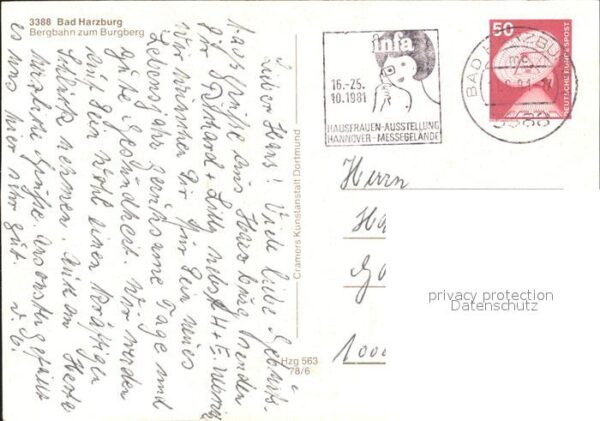 3388 Bad Harzburg
Bergbahn zum Burgberg
Lieber Hans! Viele liebe Geburts-
tagsgrüße aus Harzburg senden
Dir Richard + Lilly nebst H + E.
Wir wünschen Dir für Dein neues
Lebensjahr geruhsame Tage und
gute Gesundheit. Wir werden
auf Dein Wohl einen kräftigen
Schluck nehmen. Auch an Herta
herzliche Grüße. Ansonsten gefällt
es uns hier sehr gut. D. O.
Cramers Kunstanstalt Dortmund
Hzg 563
78/6
infa
16.-25.
10.1981
HAUSFRAUEN-AUSSTELLUNG
HANNOVER-MESSEGELÄNDE
BAD HARZBURG
3388
50
DEUTSCHE BUNDESPOST
Herrn
Ha
Go
1000
privacy protection
Datenschutz